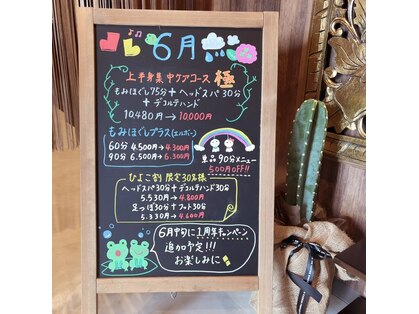 6月
上半身集中ケアコース 極
もみほぐし75分+ヘッドスパ30分
+デコルテハンド
10,480円→10,000円
もみほぐしプラス(エルボー)
60分 4,500円→4,300円
90分 6,500円→6,300円
単品90分メニュー
500円OFF!!
ひよこ割 限定30名様
ヘッドスパ30分+デコルテハンド30分
5,530円→4,800円
足つぼ30分+フット30分
5,330円→4,600円
6月中旬に1周年キャンペーン
追加予定!!!
お楽しみに